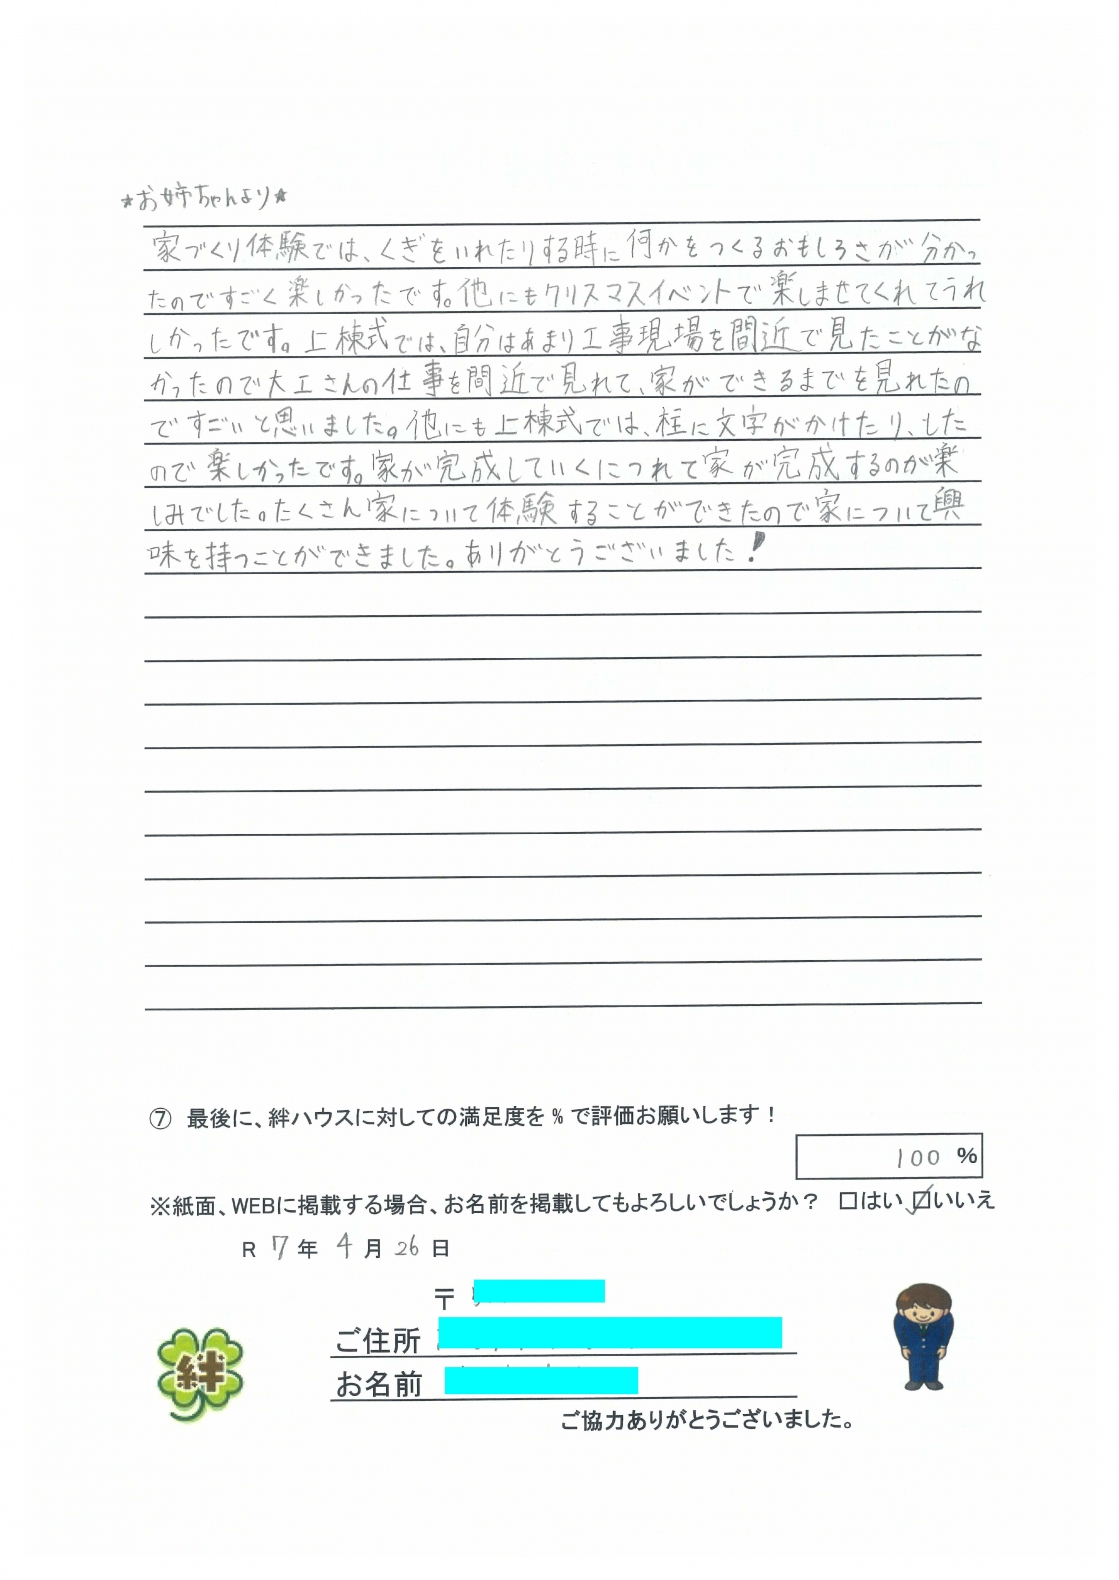 ★お姉ちゃんより★
家づくり体験では、くぎをいれたりする時に何かをつくるおもしろさが分かっ
たのですごく楽しかったです。他にもクリスマスイベントで楽しませてくれてうれ
しかったです。上棟式では、自分はあまり工事現場を間近で見たことがな
かったので大工さんの仕事を間近で見れて、家ができるまでを見れたの
ですごいと思いました。他にも上棟式では、柱に文字がかけたり、した
ので楽しかったです。家が完成していくにつれて家が完成するのが楽
しみでした。たくさん家について体験することができたので家について興
味を持つことができました。ありがとうございました!
⑦ 最後に、絆ハウスに対しての満足度を%で評価お願いします！
100 %
※紙面、WEBに掲載する場合、お名前を掲載してもよろしいでしょうか？ □はい ☑いいえ
R 7年 4月 26日
〒
ご住所
お名前
絆
ご協力ありがとうございました。